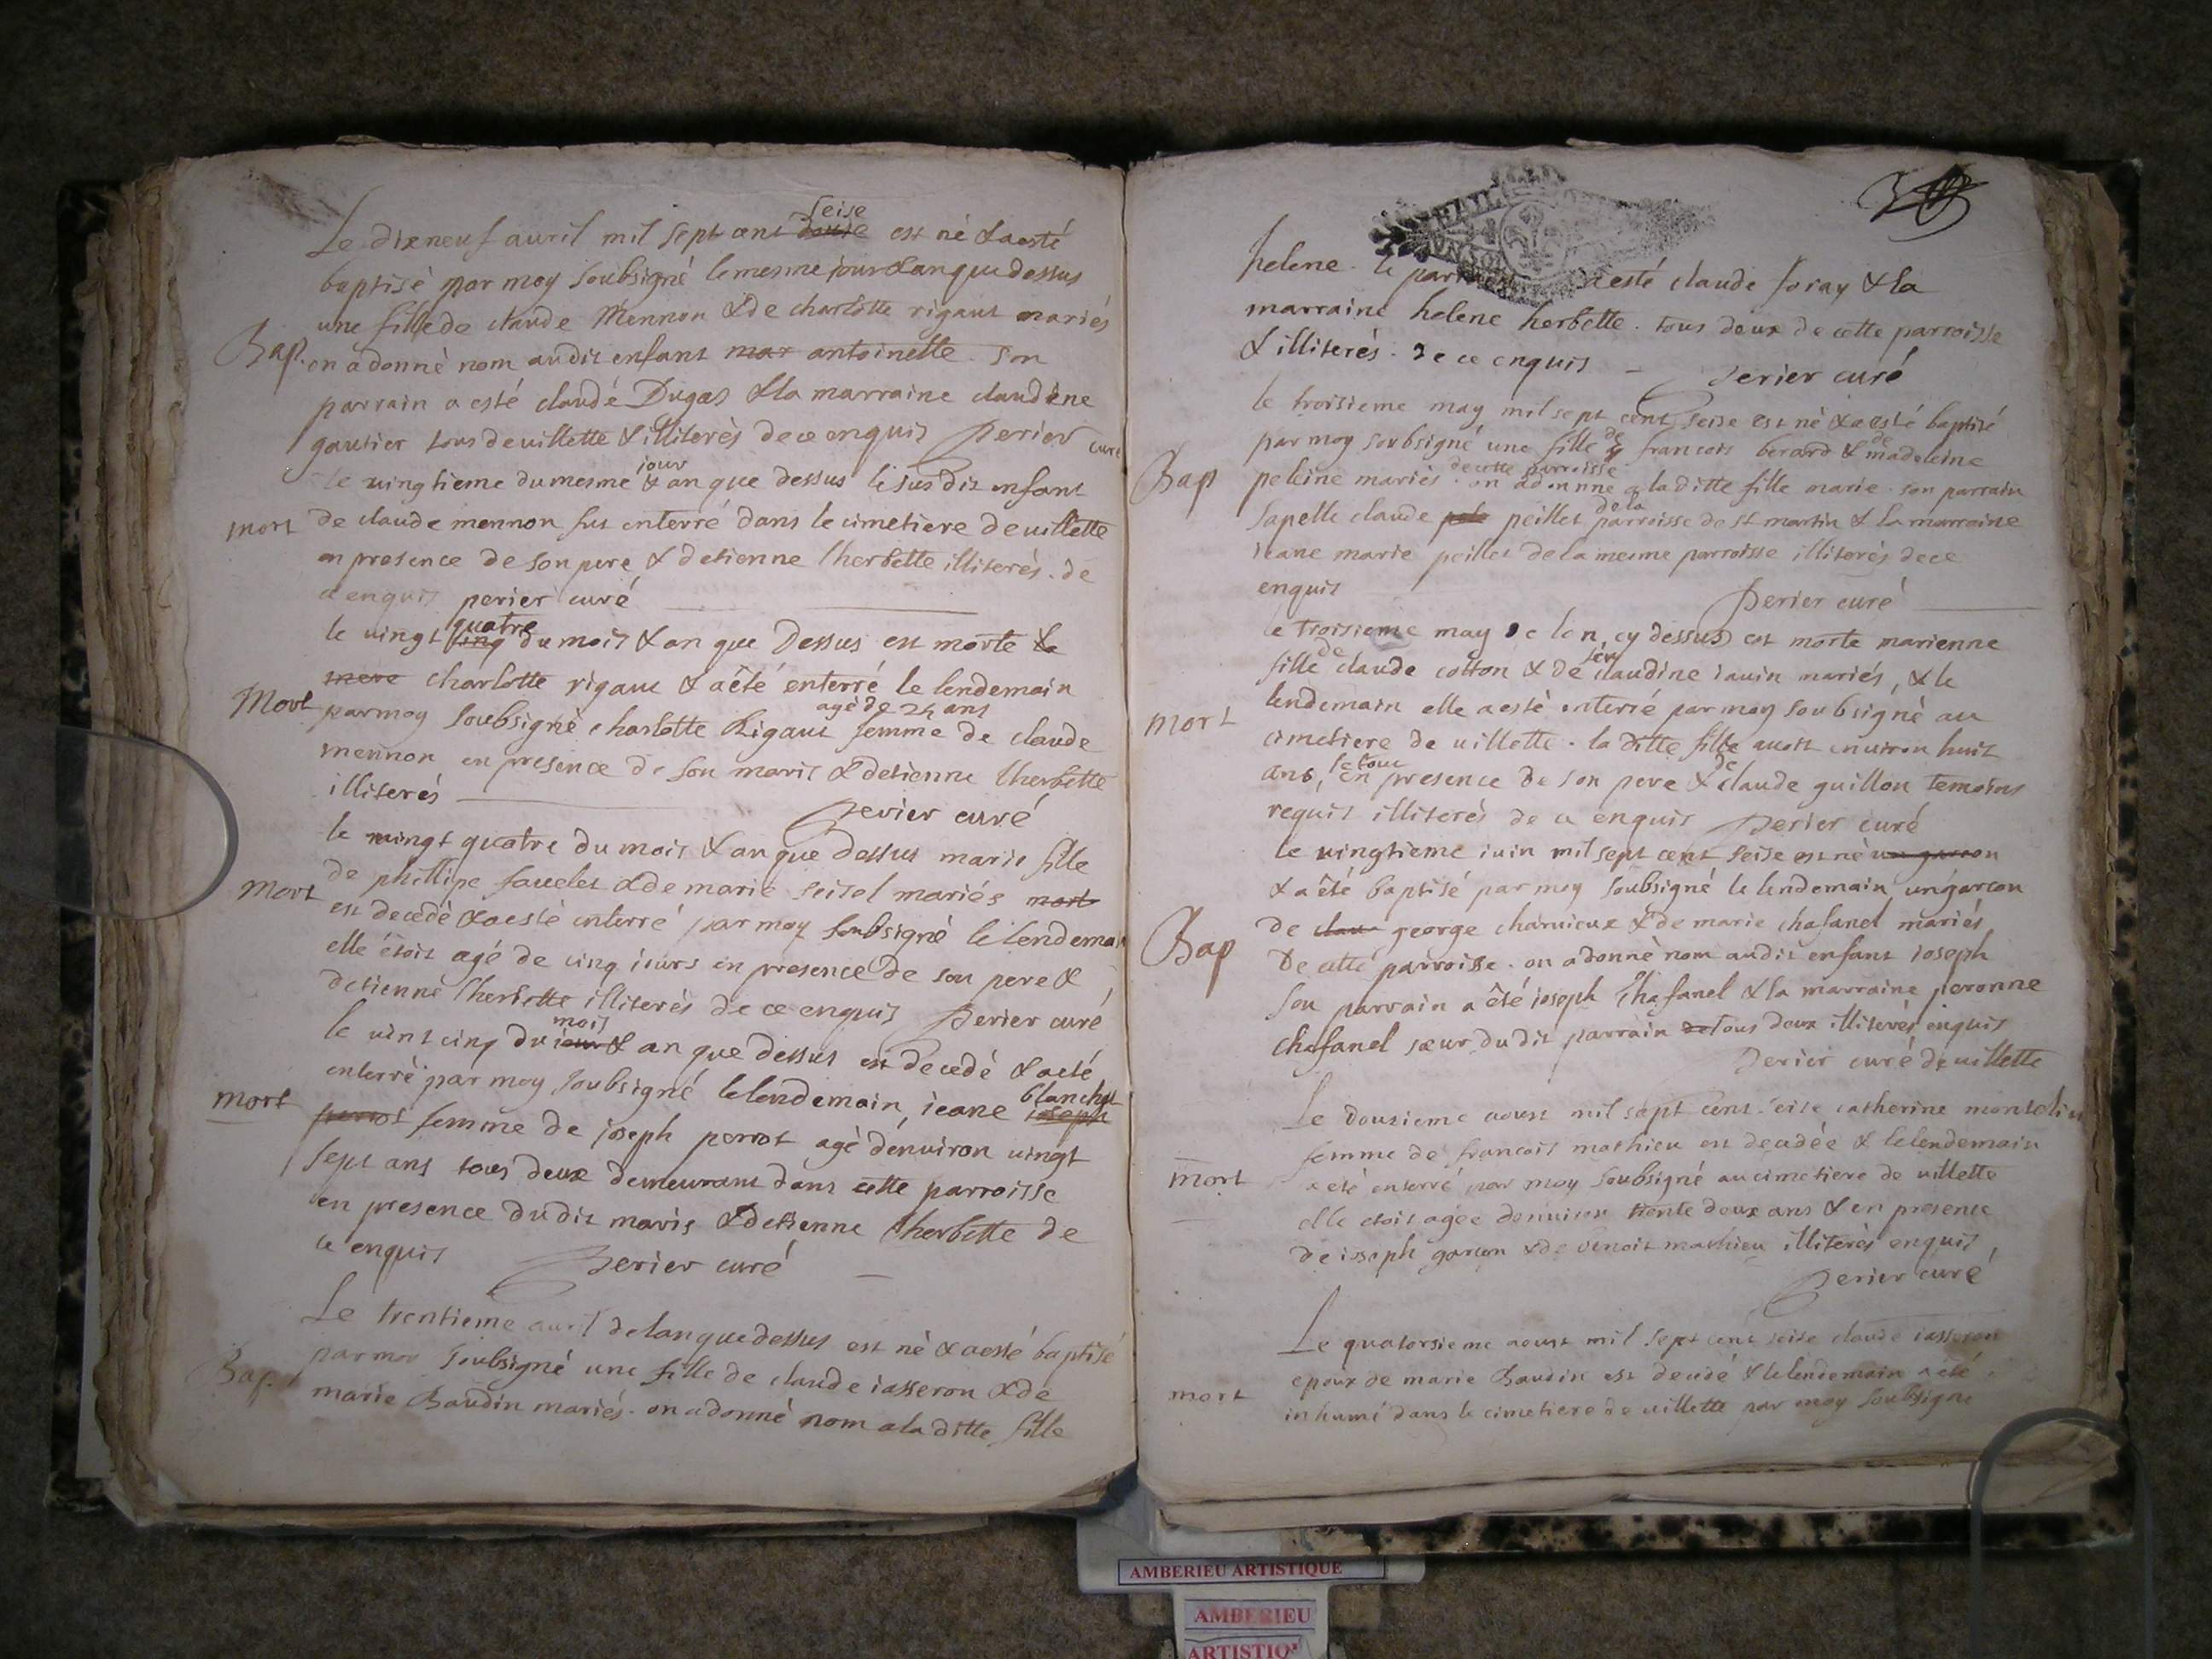 Le dixneuf auril mil sept cent douse seise est né & aesté
baptisé par moy soubsigné le mesme jour & an que dessus
une fille de claude Mennon & de charlotte rigaut mariés
Bap. on a donné nom audit enfant mar antoinette. son
parrain a esté claude Dugas & la marraine claudine
gautier tous de uillette & illiterés de ce enquis perier curé
le uingtieme du mesme jour & an que dessus le susdit enfant
mort de claude mennon fut enterré dans le cimetiere de uillette
en presence de son pere & detienne lherbette illiterés. de
ce enquis perier curé
le uingt cinq quatre du mois & an que Dessus est morte la
mere charlotte rigaut & a êté enterré le lendemain
Mort par moy soubsigné charlotte Rigaut agé de 24 ans femme de claude
mennon en presence de son maris & detienne lherbette
illiterés perier curé
le uingt quatre du mois & an que dessus marie fille
de phillipe fauelet & de marie seitel mariés mort
Mort est decedé & aesté enterré par moy soubsigné le lendemain
elle étoit agé de cinq iours en presence de son pere &
detienne lherbette illiterés de ce enquis perier curé
le uint cinq du iour mois & an que dessus est decedé & aeté
enterré par moy soubsigné lelendemain, ieane joseph blanchet
mort perrot femme de joseph perrot agé denuiron uingt
sept ans tous deux demeurant dans cette parroisse
en presence dudit maris & detienne lherbette de
ce enquis perier curé
Le trentieme auril delanquedessus est né & aesté baptisé
Bap. par moy soubsigné une fille de claude iasseron & de
marie Baudin mariés. on adonné nom a la ditte fille
helene. le parrain a esté claude foray & la
marraine helene herbette. tous deux de cette parroisse
& illiterés. de ce enquis perier curé
le troisieme may mil sept cent seise est né & aesté baptisé
par moy soubsigné une fille de francois berard & de madeleine
Bap peleine mariés de cette parroisse. on adonnné a laditte fille marie. son parrain
sapelle claude pele peillet de la parroisse de st martin & la marraine
ieane marie peillet de la mesme parroisse illiterés dece
enquis perier curé
le troisieme may de lan cy dessus est morte marienne
fille de claude cotton & de claudine iauin mariés, & le
lendemain elle aesté enterré par moy soubsigné au
mort cimetiere de uillette. la ditte fille auoit enuiron huit
ans, le tout en presence de son pere & de claude guillon temoins
requis illiterés de ce enquis perier curé
le uingtieme iuin mil sept cent seise est né un garcon
& a êté baptisé par moy soubsigné le lendemain un garcon
de clau george charuieux & de marie chafanel mariés
Bap De cette parroisse. on adonné nom audit enfant ioseph
son parrain a êté ioseph Chafanel & la marraine peronne
chafanel sœur dudit parrain de tous deux illiterés enquis
perier curé de uillette
Le dousieme aoust mil sept cent seise catherine
femme de francois mathieu est decedée & le lendemain
mort aeté enterré par moy soubsigné au cimetiere de uillette
elle etoit agée denuiron trente deux ans & en presence
de ioseph garcon & de benoit mathieu illiterés enquis
perier curé
Le quatorsieme aoust mil sept cent seise claude iasseron
epoux de marie Baudin est decedé & le lendemain a eté
mort inhumé dans le cimetiere de uillette par moy soubsigné
AMBERIEU ARTISTIQUE
AMBERIEU
ARTISTIQ